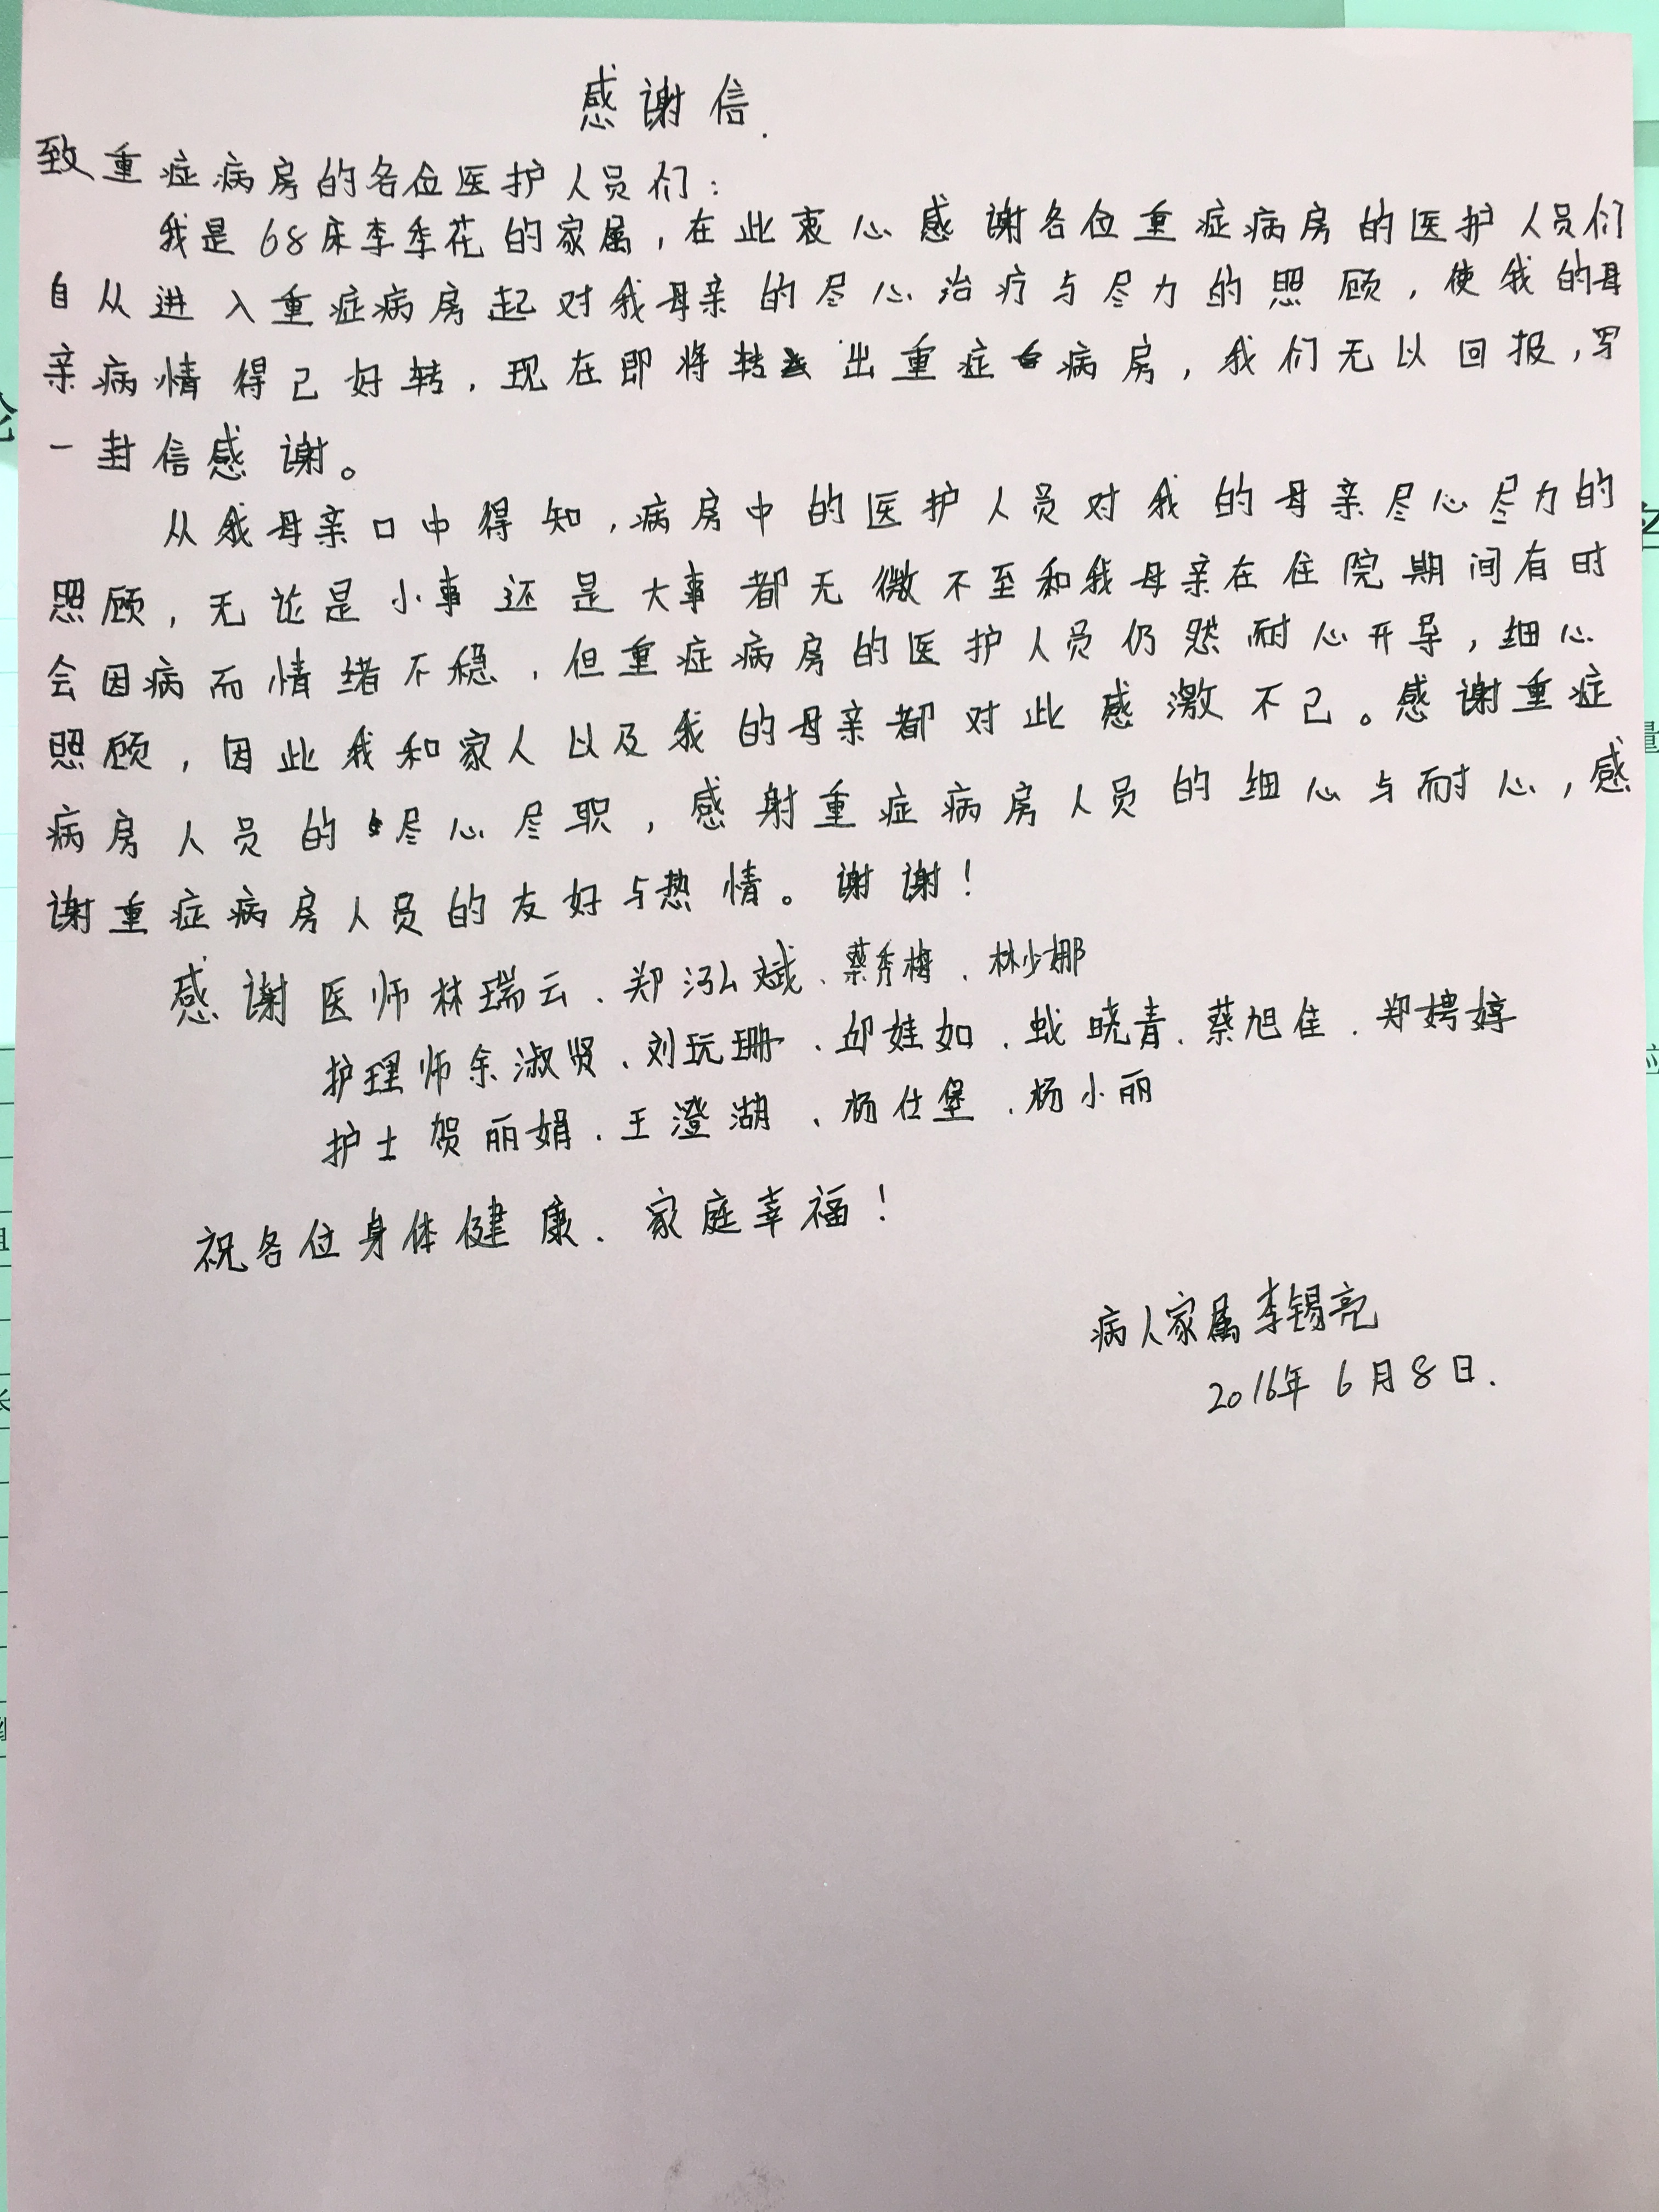 感谢信.
致重症病房的各位医护人员们：
我是68床李季花的家属，在此衷心感谢各位重症病房的医护人员们
自从进入重症病房起对我母亲的尽心治疗与尽力的照顾，使我的母
亲病情得已好转，现在即将转出重症病房，我们无以回报，写
一封信感谢。
从我母亲口中得知，病房中的医护人员对我的母亲尽心尽力的
照顾，无论是小事还是大事都无微不至和我母亲在住院期间有时
会因病而情绪不稳，但重症病房的医护人员仍然耐心开导，细心
照顾，因此我和家人以及我的母亲都对此感激不已。感谢重症
病房人员的尽心尽职，感射重症病房人员的细心与耐心，感
谢重症病房人员的友好与热情。谢谢！
感谢医师林瑞云、郑泓斌、蔡秀梅、林少娜
护理师余淑贤、刘玩珊、邱娃如、蚁晓青、蔡旭佳、郑娉婷
护士贺丽娟、王澄湖、杨仕堡、杨小丽
祝各位身体健康、家庭幸福！
病人家属李锡亮
2016年6月8日.